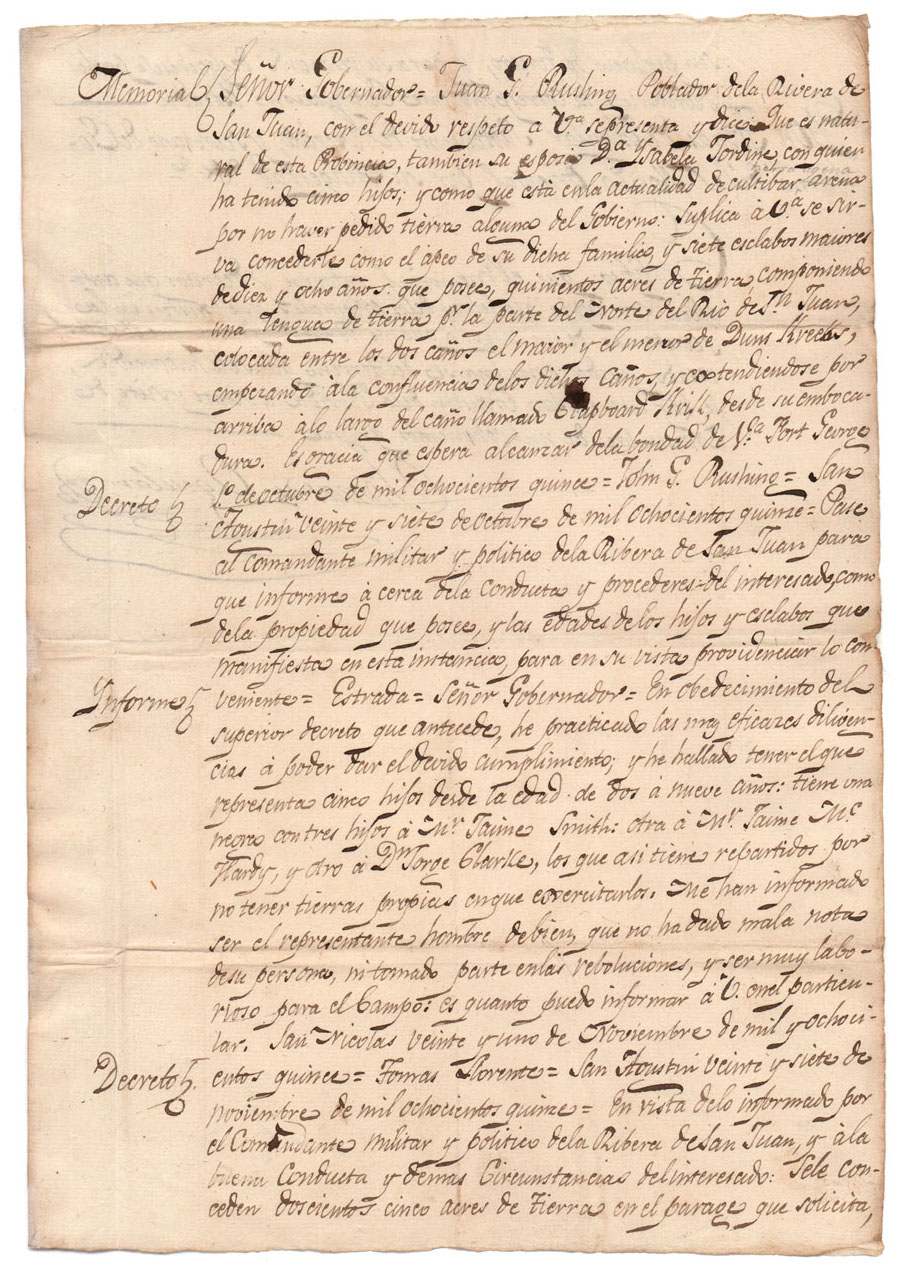 Memorial Señor Gobernador = Juan G. Rushing Poblador dela Rivera de
San Juan, con el devido respeto a V.a se presenta y dice: Que es natu-
ral de esta Probincia, tambien su esposa D.a Ysabela Jordine, con quien
ha tenido cinco hijos; y como que está enla actualidad de cultibar arena
por no haver pedido tierra alguna del Gobierno: Suplica à V.a se sir-
va concederle como el apeo de su dicha familia, y siete esclabos maiores
de diez y ocho años que posee, quinientos acres de tierra, componiendo
una lengua de tierra pr. la parte del Norte del Rio de Sn. Juan,
colocada entre los dos caños el maior y el menor de Duns Kreeks,
empezando à la confluencia delos dichos Caños, y extendiendose por
arriba à lo largo del caño llamado Clapboard Krik, desde su emboca-
dura. Es gracia que espera alcanzar dela bondad de V.a Fort George
1.o de octubre de mil ochocientos quince = John G. Rushing = San
Decreto Agustin veinte y siete de octubre de mil ochocientos quinze = Pase
al Comandante militar y politico dela Ribera de San Juan para
que informe à cerca dela Conducta y procederes = del interesado, como
dela propiedad que posee, y las edades de los hijos y esclabos que
manifiesta en esta instancia, para en su vista providenciar lo con
Ynforme veniente = Estrada = Señor Gobernador = En obedecimiento del
superior decreto que antecede, he practicado las muy eficazes diligen-
cias à poder dar el devido cumplimiento; y he hallado tener el que
representa cinco hijos desde la edad de dos à nueve años: tiene una
negra con tres hijos à Mr. Jaime Smith: otra à Mr. Jaime Mc
Hardy, y otro à Dn Jorge Clarke, los que asi tiene repartidos por
no tener tierras propias en que exercitarlos. Me han informado
ser el representante hombre de bien, que no ha dado mala nota
de su persona, ni tomado parte en las reboluciones, y ser muy labo-
rioso para el Campo: es quanto puedo informar à V. en el particu-
lar. San Nicolas veinte y uno de Noviembre de mil y ochoci-
Decreto entos quince = Tomas Llorente = San Agustin veinte y siete de
noviembre de mil ochocientos quinze = En vista delo informado por
el Comandante militar y politico dela Ribera de San Juan, y à la
buena Conducta y demas Circunstancias del interesado: Sele con-
ceden doscientos cinco acres de tierra en el parage que solicita,